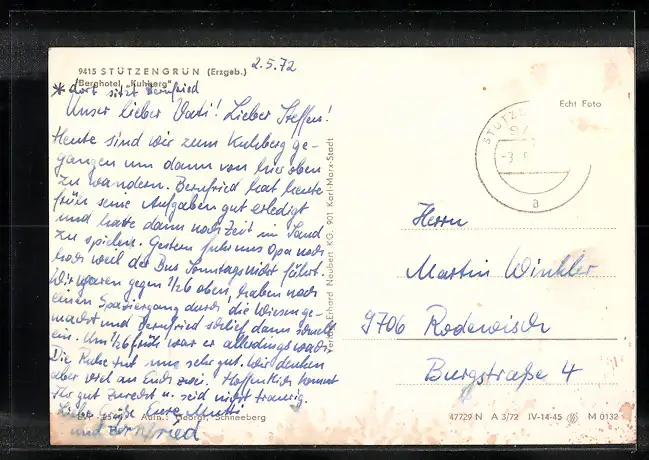 9415 STÜTZENGRÜN (Erzgeb.)
Berghotel „Kuhberg"
2.5.72
* dort sitzt Bernfried
Unser lieber Vati! Lieber Steffen!
Heute sind wir zum Kuhberg ge-
gangen um dann von hier oben
zu wandern. Bernfried hat heute
früh seine Aufgaben gut erledigt
und hatte dann noch Zeit im Sand
zu spielen. Gestern fuhr uns Opa noch
hoch weil der Bus Sonntags nicht fährt.
Wir waren gegen 1/2 6 oben, haben noch
einen Spaziergang durch die Wiesen ge-
macht und Bernfried schlief dann schnell
ein. Um 1/2 6 früh war er allerdings wach.
Die Ruhe tut uns sehr gut. Wir denken
aber viel an Euch zwei. Hoffentlich kommt
Ihr gut zurecht u. seid nicht traurig.
Liebe Grüße Eure Mutti
und Bernfried
Aufn.: Schneeberg
Verlag Erhard Neubert KG, 901 Karl-Marx-Stadt
Echt Foto
STÜTZE
-3.
a
Herrn
Martin Winkler
9706 Rodewisch
Burgstraße 4
47729 N A 3/72 IV-14-45 M 0132